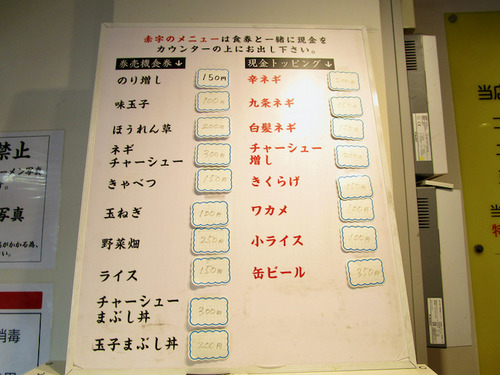 赤字のメニューは食券と一緒に現金を
カウンターの上にお出し下さい。
券売機食券↓
のり増し 150円
味玉子 100円
ほうれん草 200円
ネギ
チャーシュー 300円
きゃべつ 150円
玉ねぎ 100円
野菜畑 250円
ライス 150円
チャーシュー
まぶし丼 300円
玉子まぶし丼 200円
現金トッピング↓
辛ネギ
九条ネギ
白髪ネギ
チャーシュー
増し
きくらげ
ワカメ 100円
小ライス 100円
缶ビール 350円
禁止
写真
消毒
当店